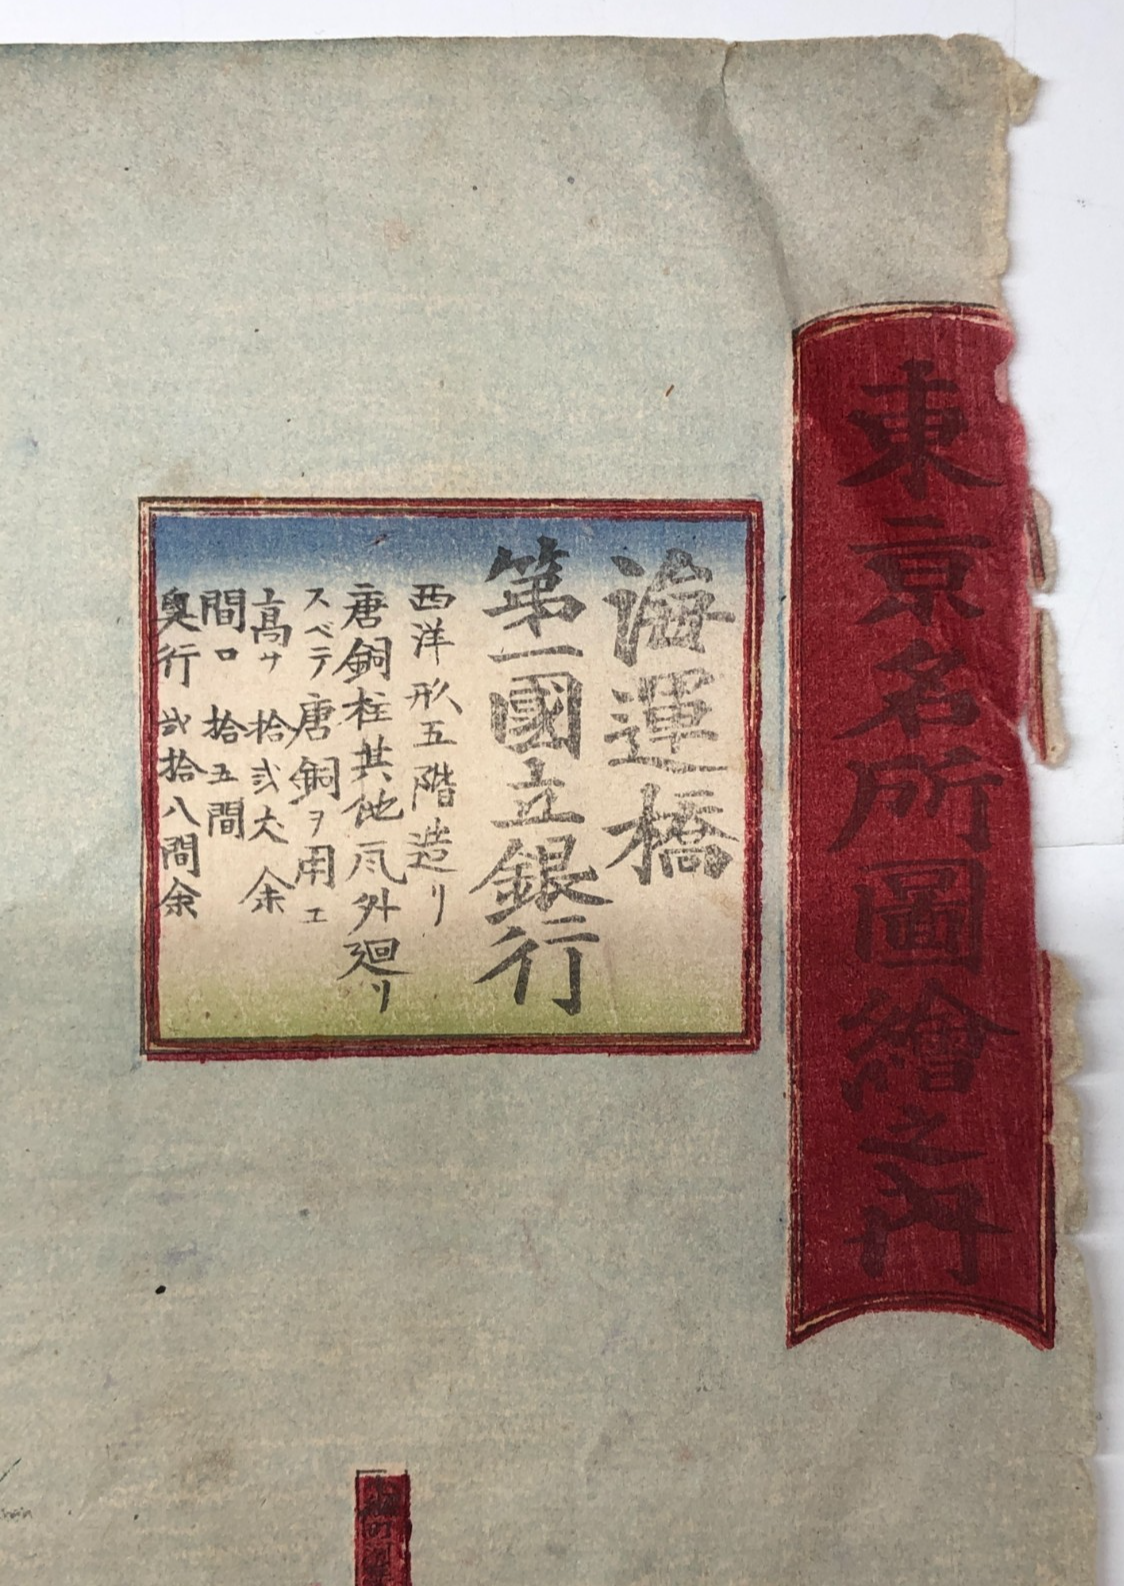 東亰名所圖繪之内
海運橋
第一國立銀行
西洋形五階造リ
唐銅柱其他瓦外廻リ
スベテ唐銅ヲ用エ
高サ 拾弐丈余
間口 拾五間
奥行 弐拾八間余